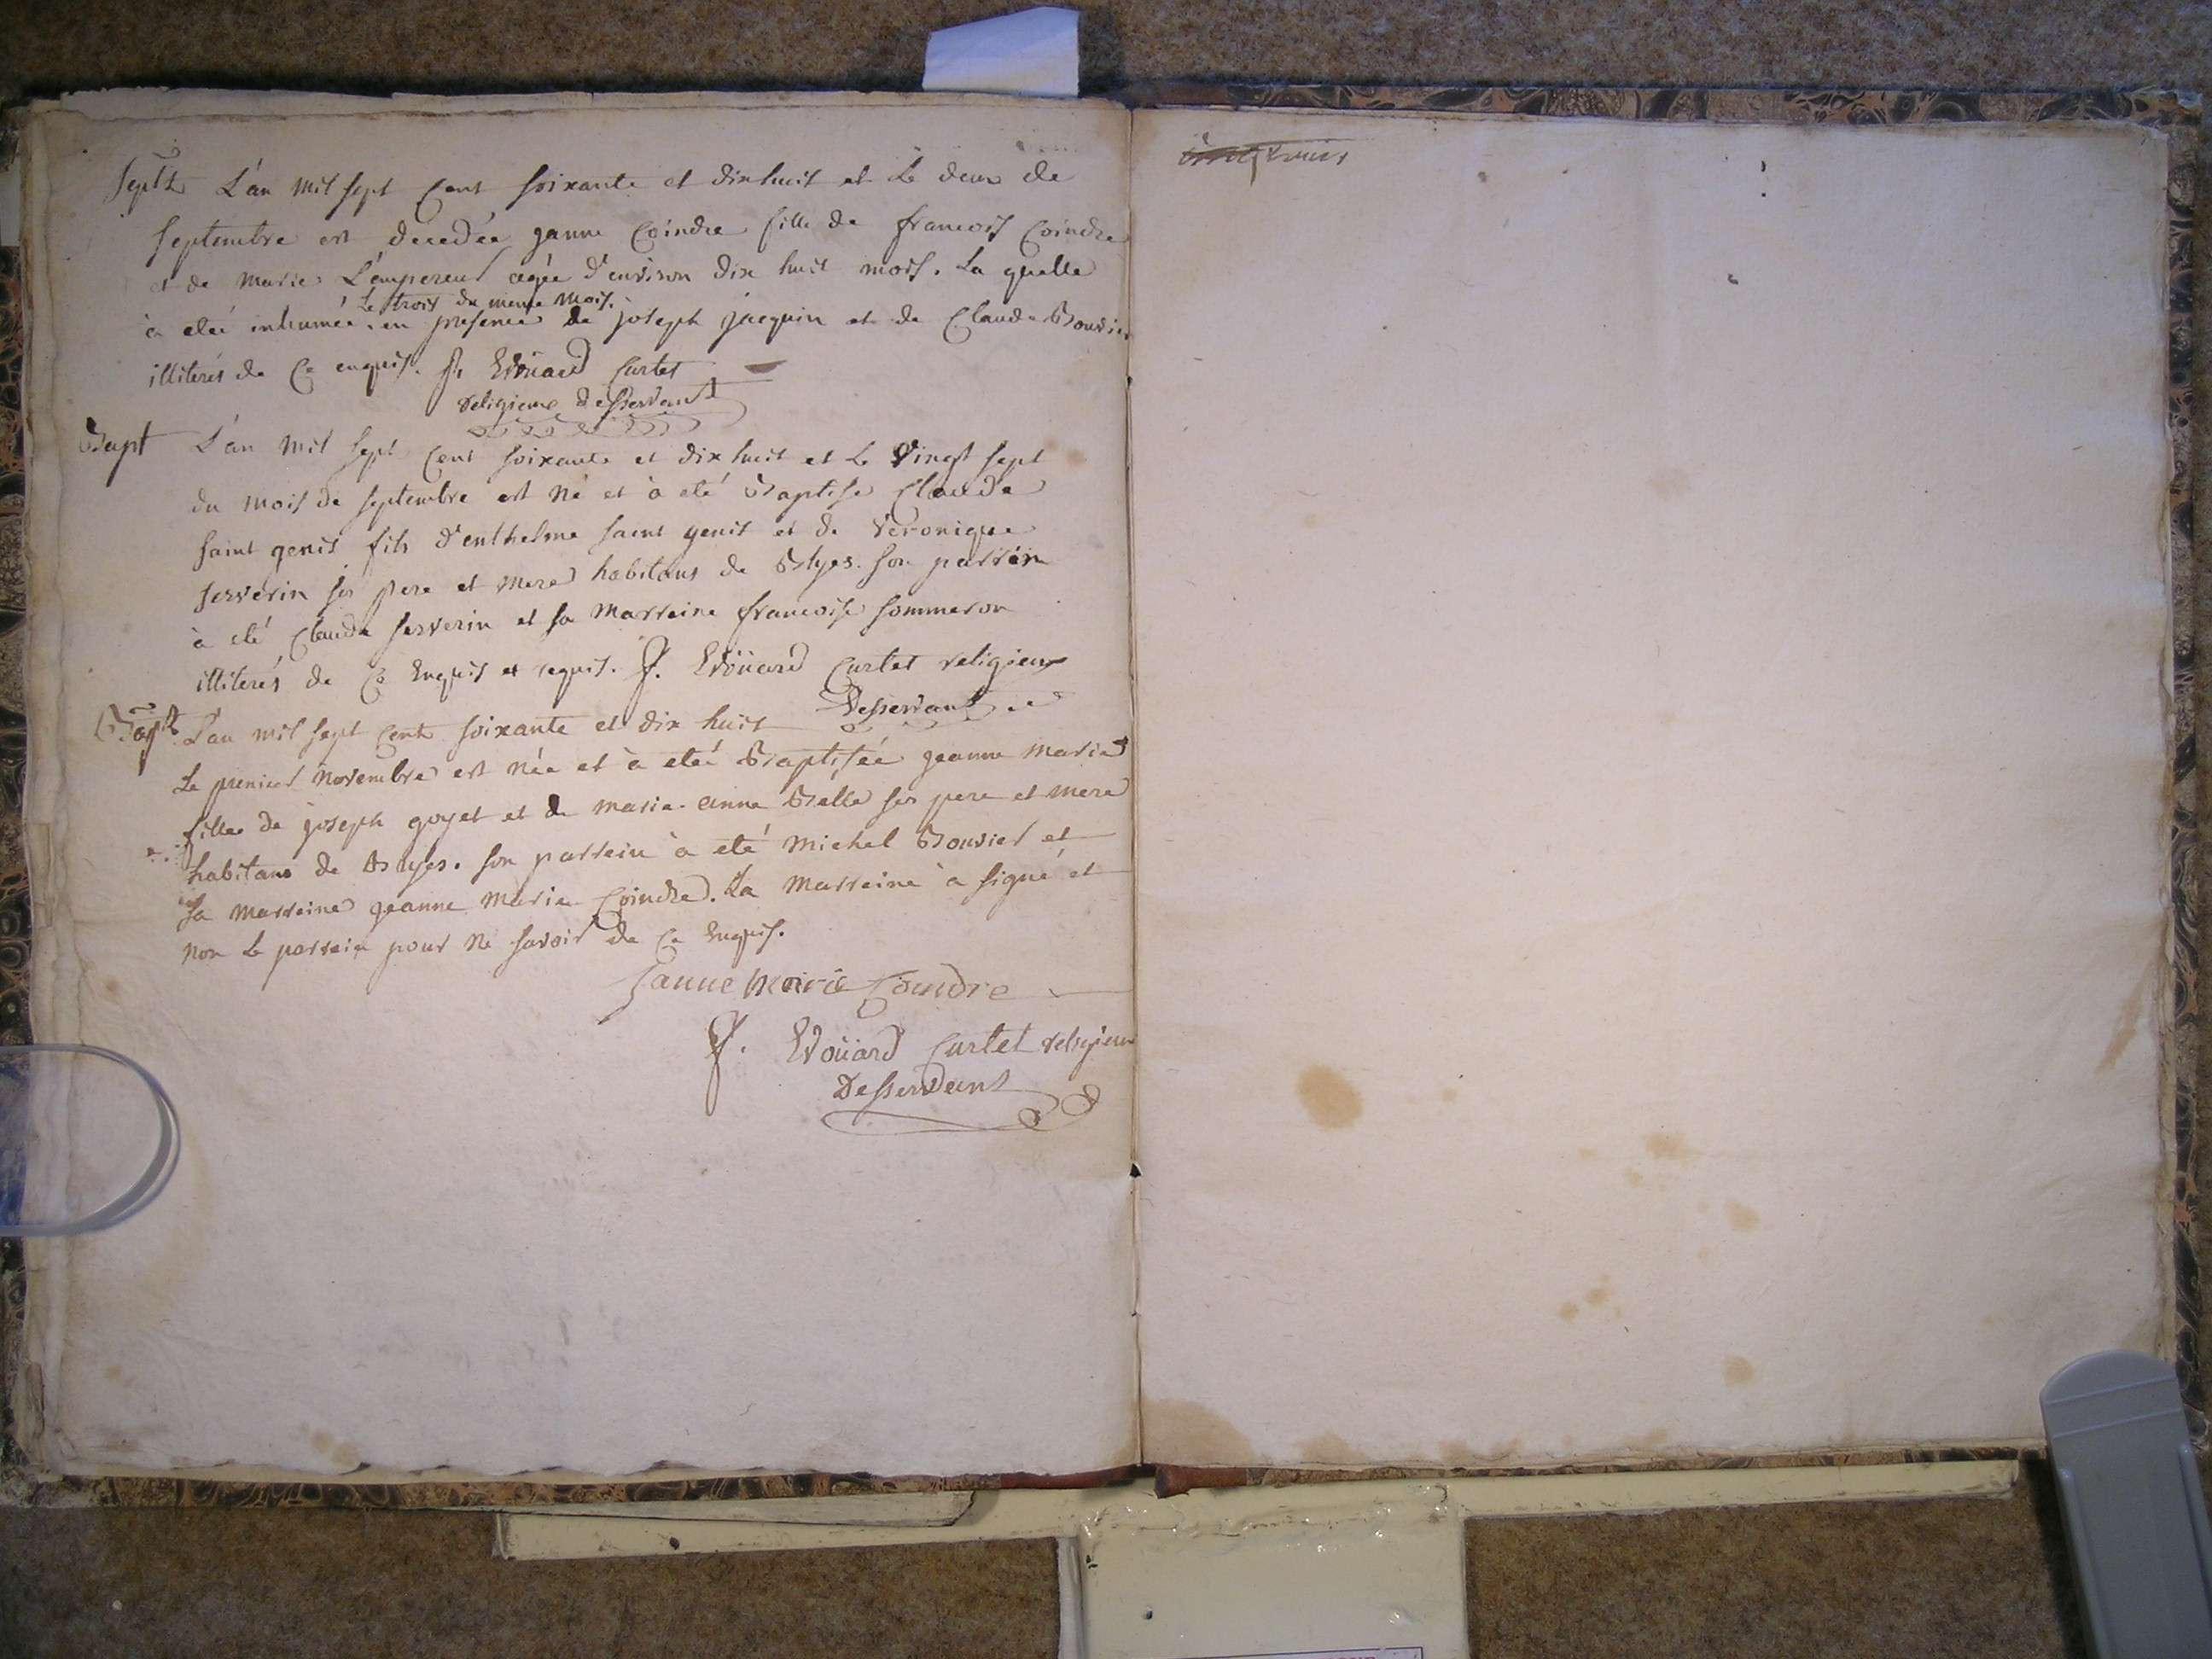 Sept L'an mil sept cent soixante et dix huit et le deux de
septembre est decedée janne Coindre fille de francois Coindre
et de marie L'empereur agée d'environ dix huit mois. La quelle
le trois du meme mois.
à eteé inhumée. en presence de joseph jacquin et de Claude Bouvier
illiterés de Ce enquis. f. Edouard Curtet
religieux desservant
Bapt L'an mil sept cent soixante et dix huit et le vingt sept
du mois de septembre est né et à eté Baptise Claude
saint genis fils d'enthelme saint genis et de veronique
serverin ses pere et mere habitans de Blyes. son parrein
à eté Claude serverin et sa marreine francoise sommeron
illiterés de Ce Enquis et requis. f. Edoüard Curtet religieux
Desservant
Bapt. L'an mil sept cent soixante et dix huit
Le premier novembre est née et à eteé Baptiseé jeanne marie
fille de joseph goyet et de marie-anne Belle ses pere et mere
habitans de Blyes. son parrein à eté michel Bouvier et
sa marreine jeanne marie Coindre. La marreine à signé et
non le parrein pour ne savoir de Ce Enquis.
Janne marie Coindre
f. Edoüard Curtet religieux
Desservant